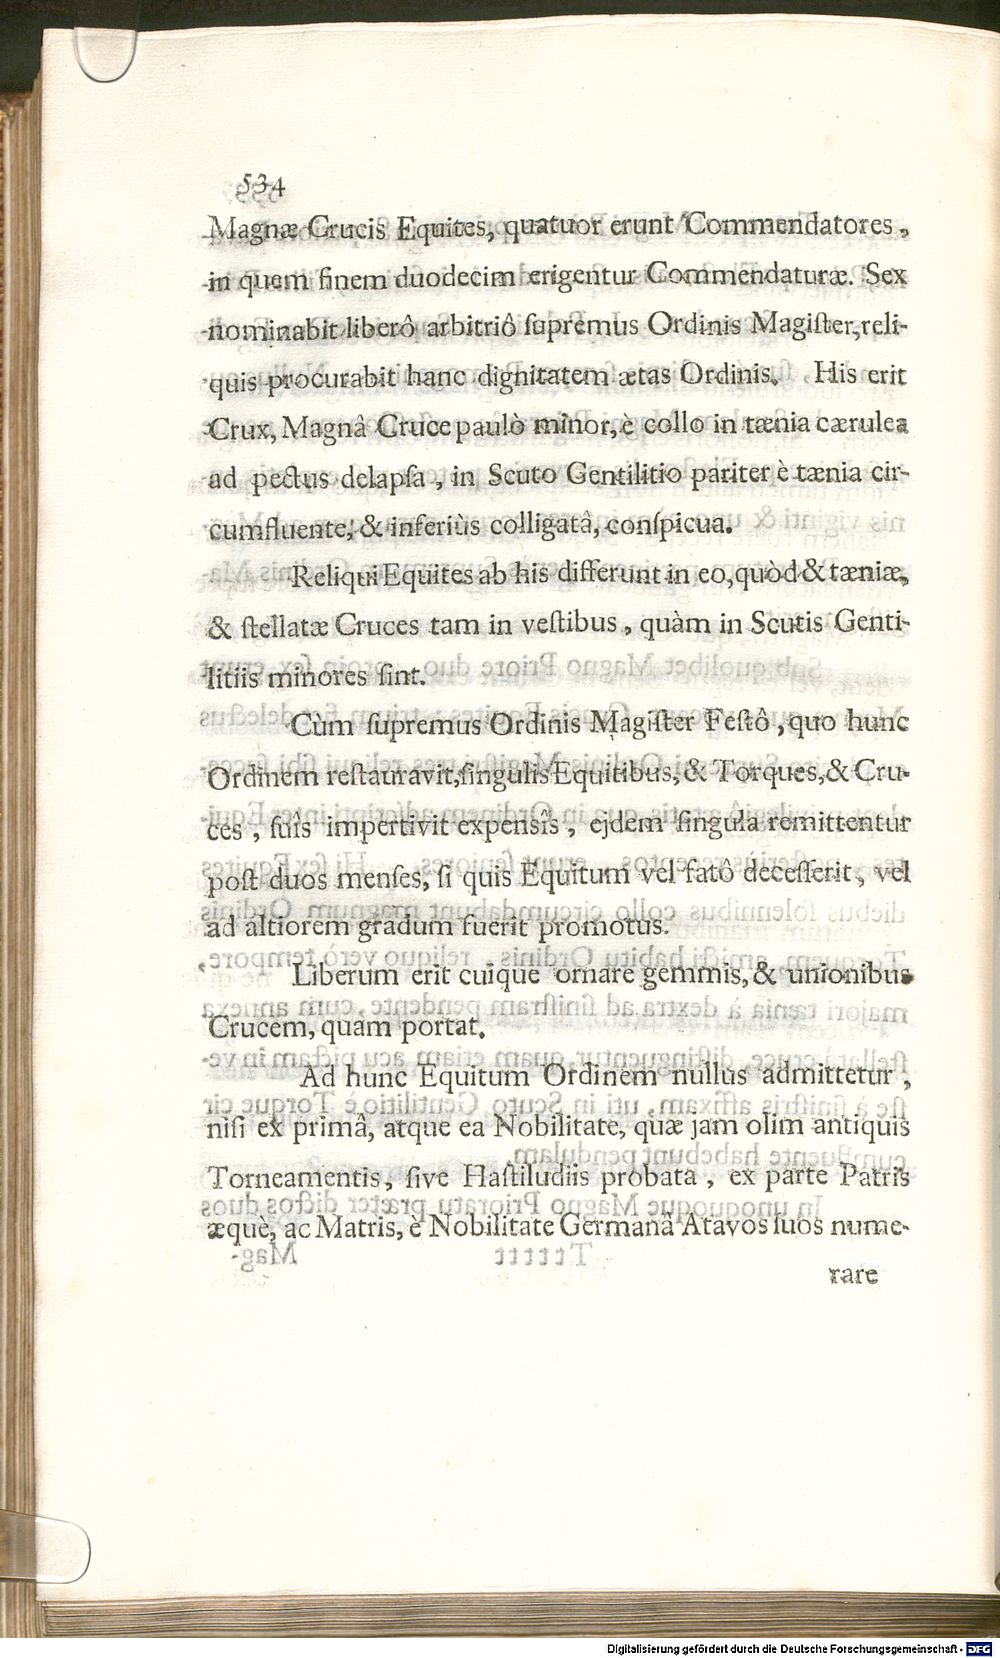 534
Magnæ Crucis Equites, quatuor erunt Commendatores,
in quem finem duodecim erigentur Commendaturæ. Sex
nominabit liberô arbitriô ſupremus Ordinis Magiſter, reli-
quis procurabit hanc dignitatem ætas Ordinis. His erit
Crux, Magnâ Cruce paulò minor, è collo in tænia cærulea
ad pectus delapſa, in Scuto Gentilitio pariter è tænia cir-
cumfluente, & inferiùs colligatâ, conſpicua.
Reliqui Equites ab his differunt in eo, quòd & tæniæ,
& ſtellatæ Cruces tam in veſtibus, quàm in Scutis Genti-
litiis minores ſint.
Cùm ſupremus Ordinis Magiſter Feſtô, quo hunc
Ordinem reſtauravit, ſingulis Equitibus, & Torques, & Cru-
ces, ſuîs impertivit expensîs, ejdem ſingula remittentur
poſt duos menſes, ſi quis Equitum vel fatô deceſſerit, vel
ad altiorem gradum fuerit promotus.
Liberum erit cuique ornare gemmis, & unionibus
Crucem, quam portat.
Ad hunc Equitum Ordinem nullus admittetur,
niſi ex primâ, atque ea Nobilitate, quæ jam olim antiquis
Torneamentis, ſive Haſtiludiis probata, ex parte Patris
æquè, ac Matris, è Nobilitate Germanâ Atavos ſuos nume-
rare
Digitalisierung gefördert durch die Deutsche Forschungsgemeinschaft - DFG